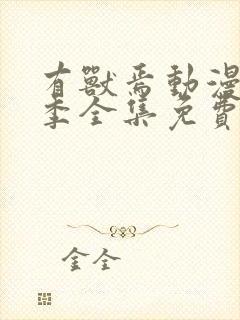 有獸焉動漫
季全集免費
金全